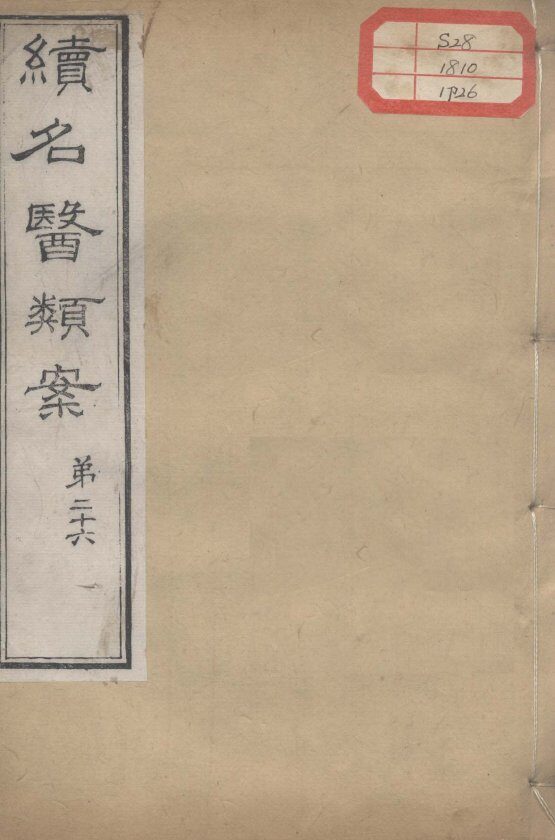 續名醫類案
弟二十六
S28
1810
1:26